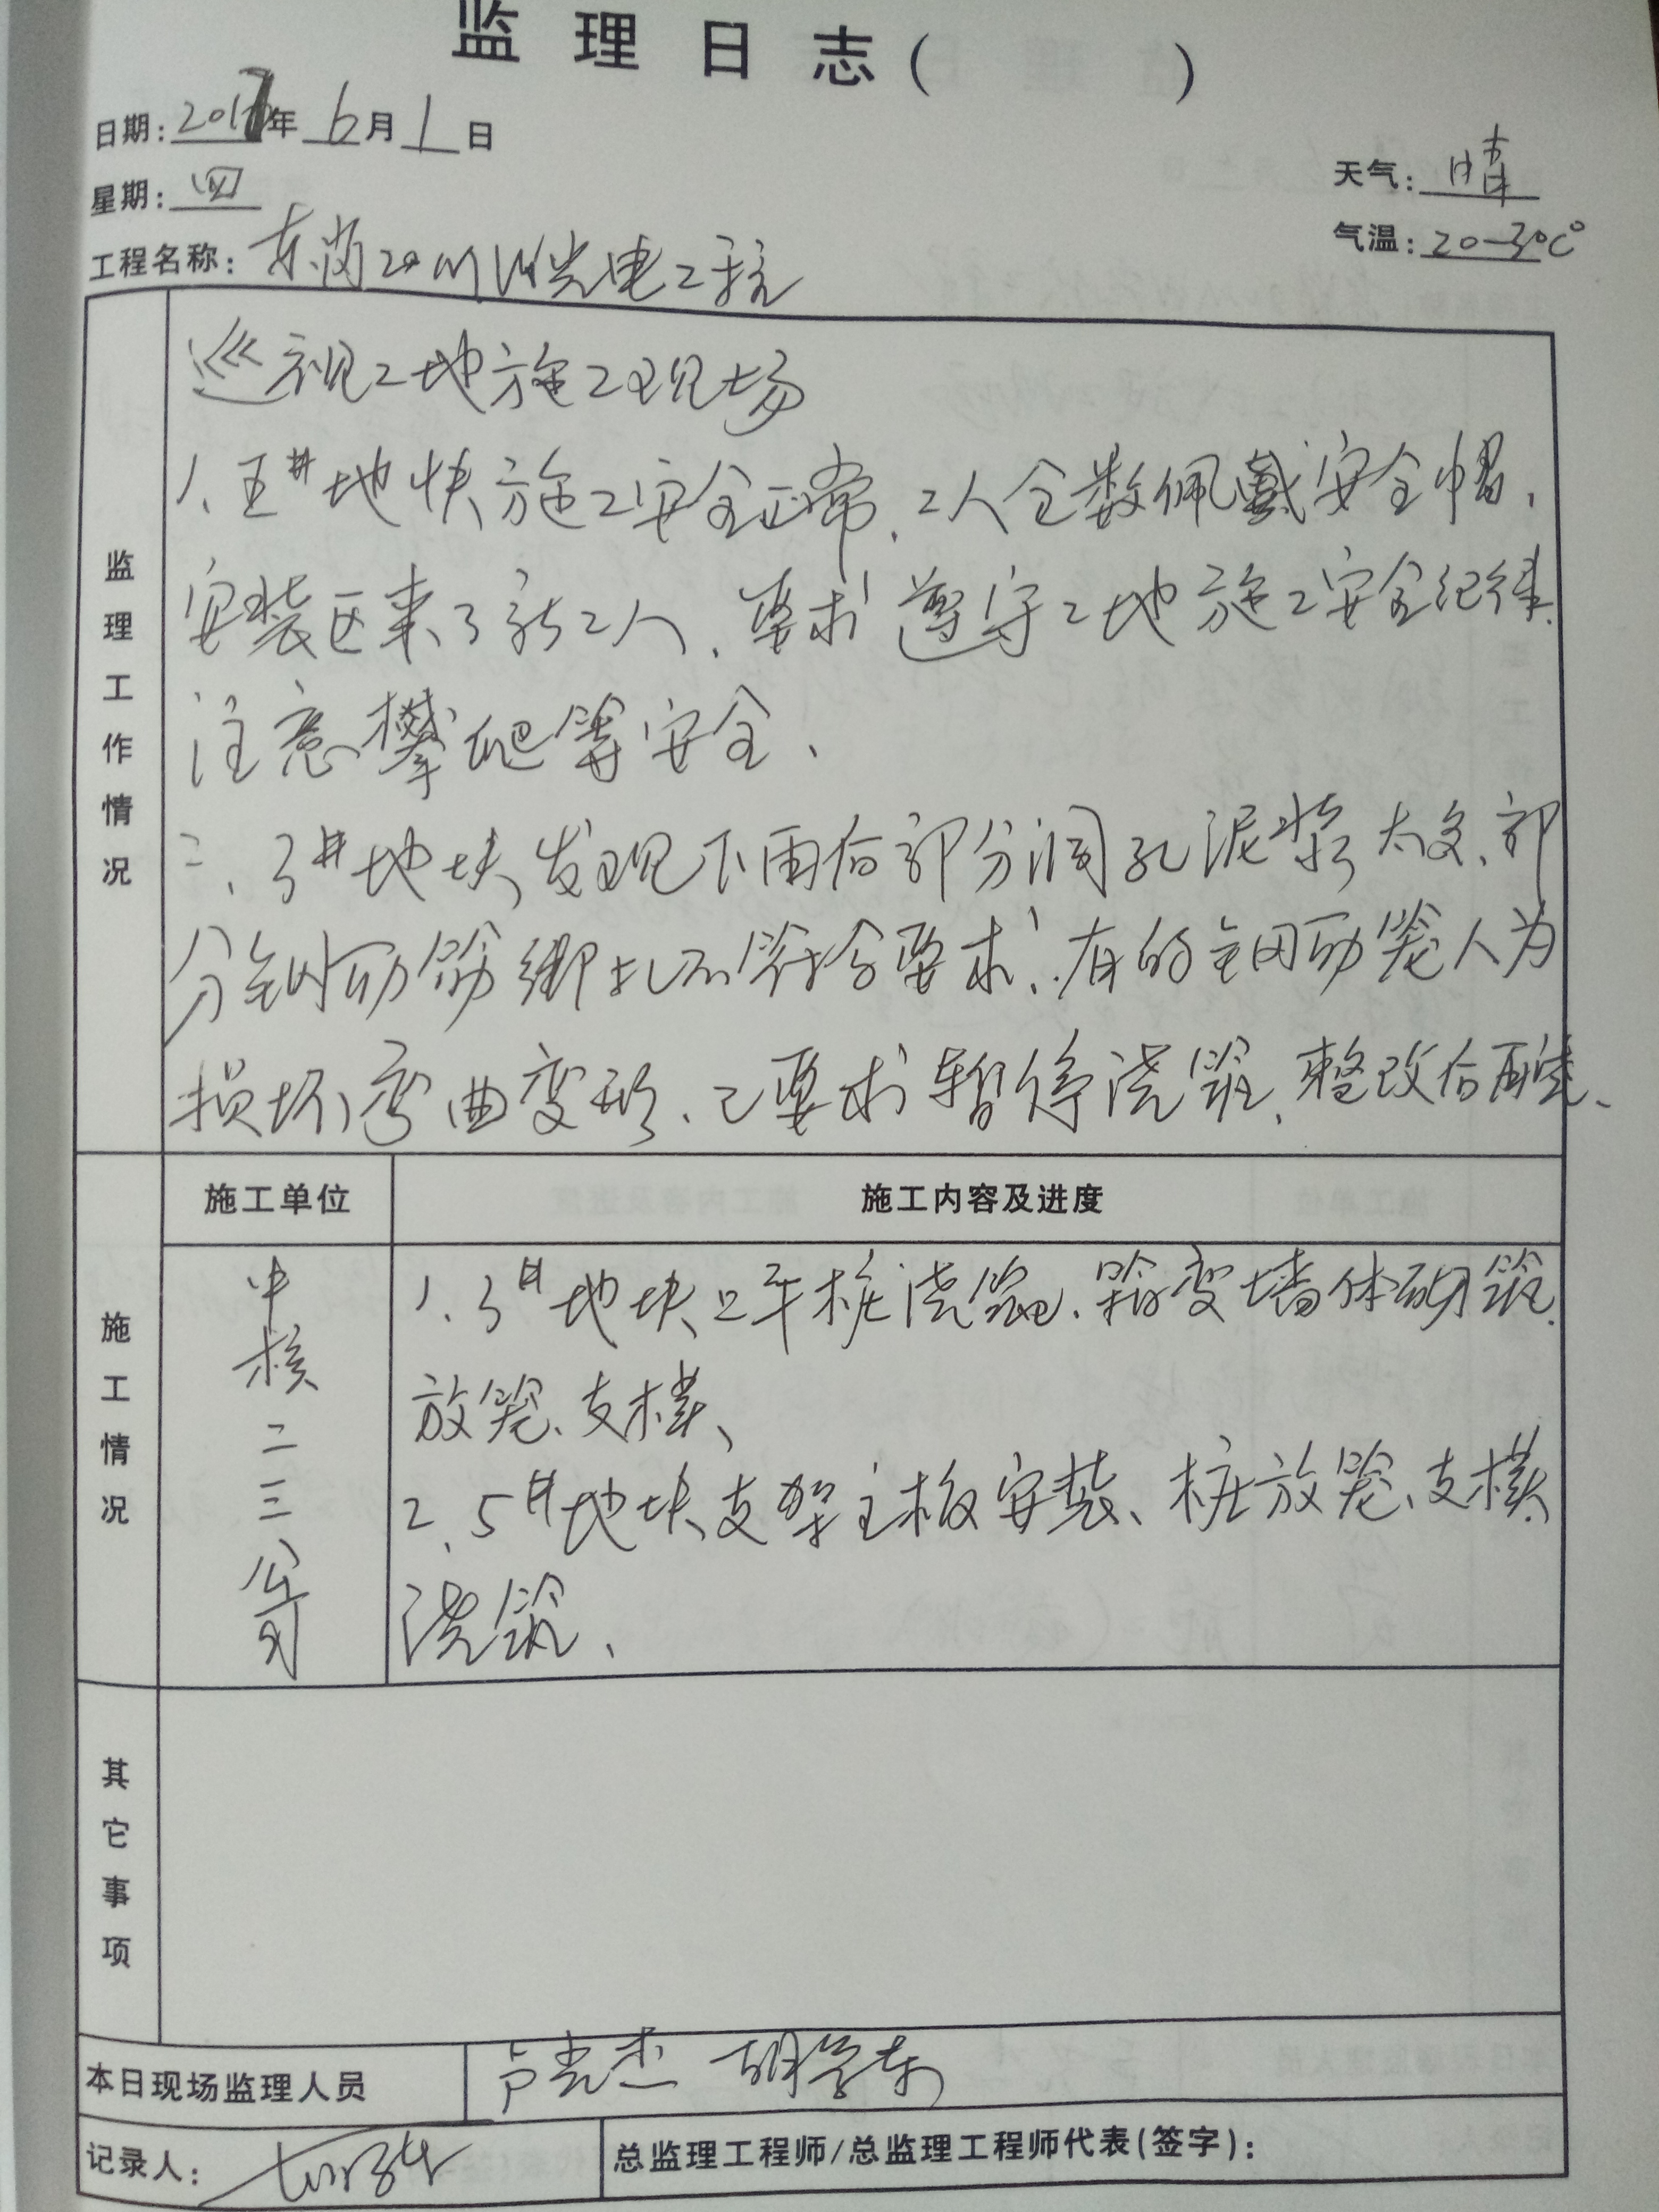 监理日志（ ）
日期：2017年6月1日
星期：四
天气：晴
气温：20-30C°
工程名称：东岗20MW光电工程
监理工作情况
巡视工地施工现场
1、五#地快施工安全正常、工人全数佩戴安全帽、
安装区来了新工人、要求遵守工地施工安全纪律、
注意攀爬等安全、
二、3#地块发现下雨后部分洞孔泥浆太多、部
分钢筋绑扎不符合要求、有的钢筋笼人为
损坏弯曲变形、已要求暂停浇筑、整改后再浇、
施工情况
施工单位
施工内容及进度
中核二三公司
1、3#地块 桩浇筑、箱变墙体砌筑、
放笼、支模、
2、5#地块支架主板安装、桩放笼、支模、
浇筑、
其它事项
本日现场监理人员
胡学东
记录人：
总监理工程师/总监理工程师代表(签字)：